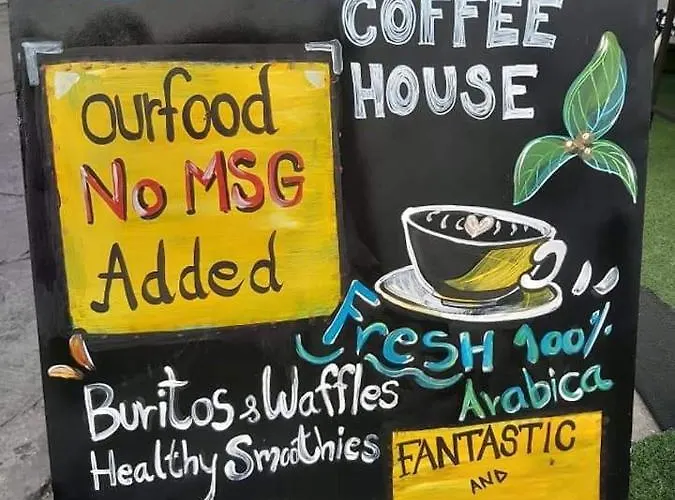 COFFEE
HOUSE
ourfood
No MSG
Added
Fresh 100%
Arabica
Buritos & Waffles
Healthy Smoothies
FANTASTIC
AND